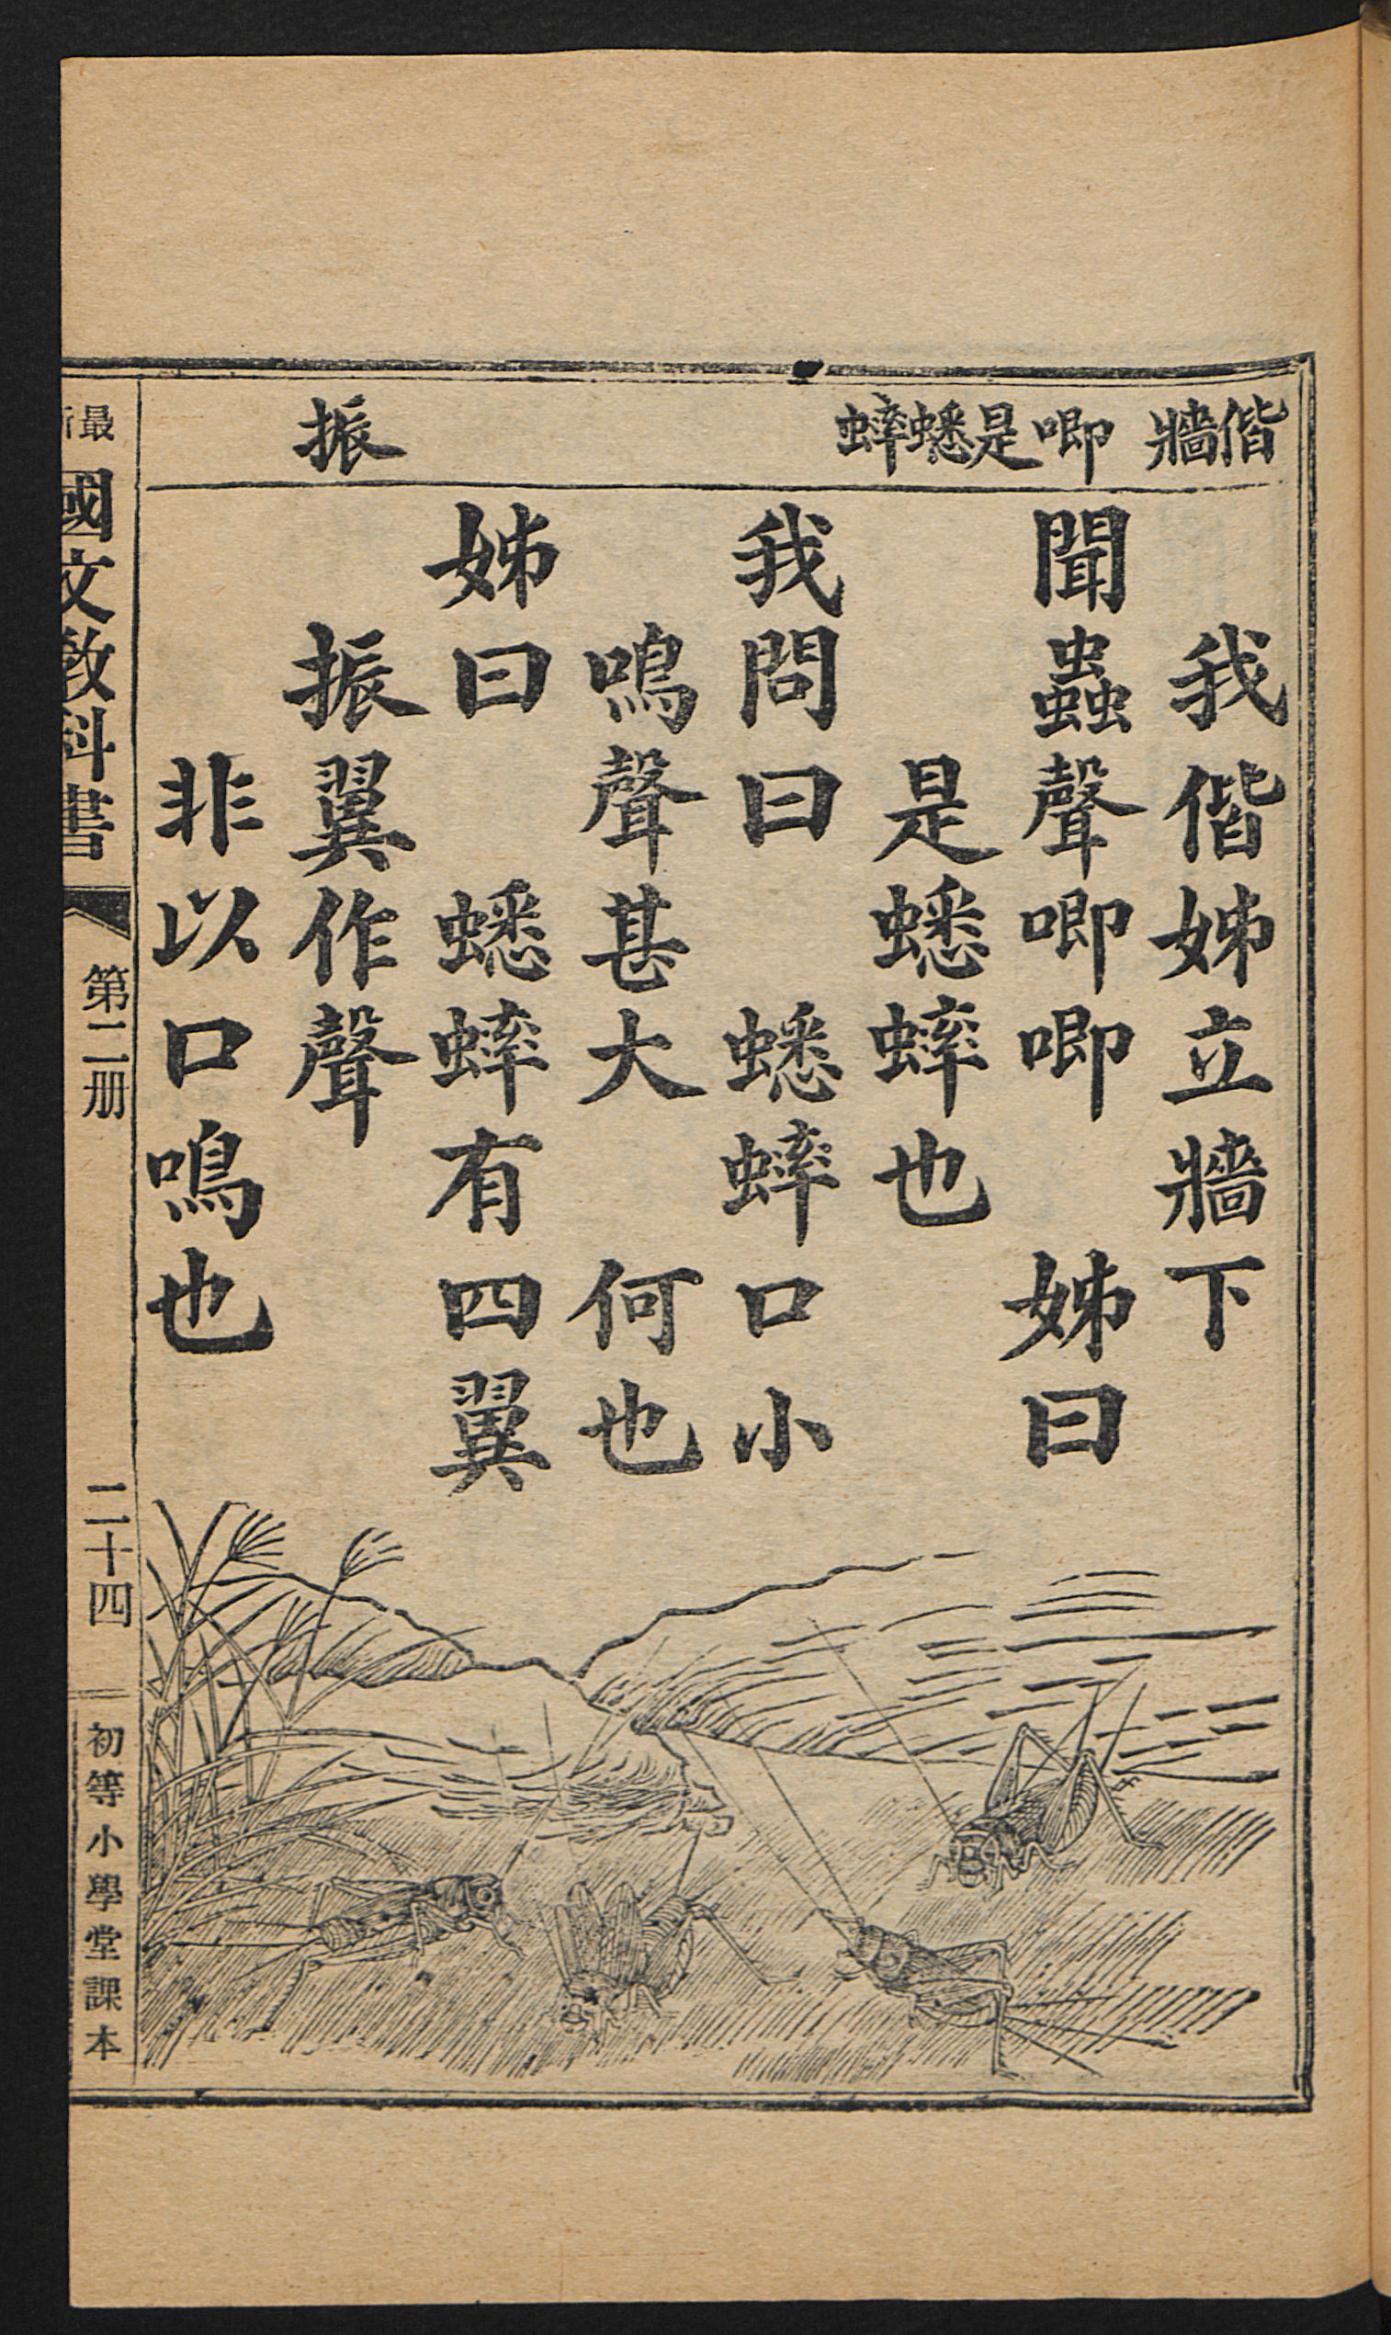 偕牆
唧
是蟋蟀
振
我偕姊立牆下
聞蟲聲唧唧　姊曰
是蟋蟀也
我問曰　蟋蟀口小
鳴聲甚大　何也
姊曰　蟋蟀有四翼
振翼作聲
非以口鳴也
最新
國文教科書
第二册
二十四
初等小學堂課本